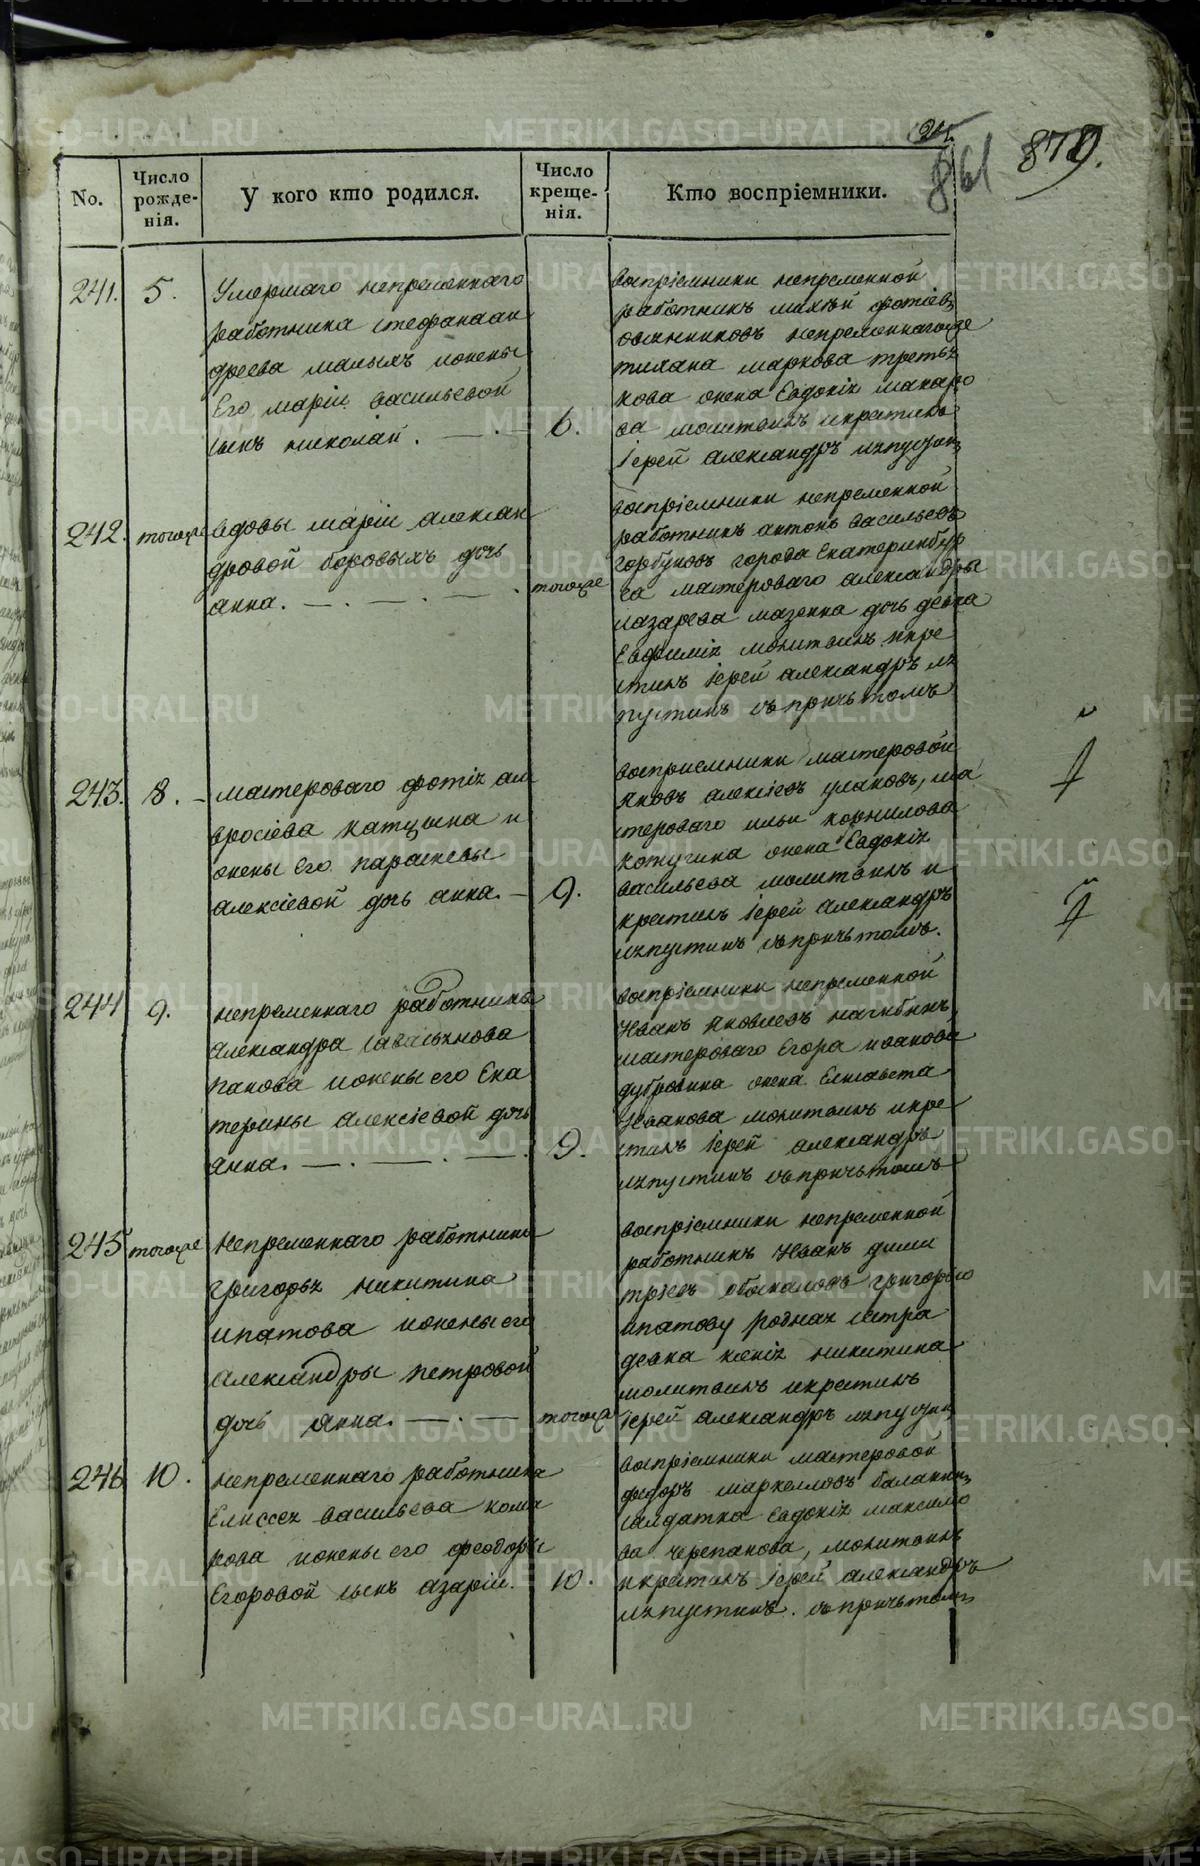 24.
861
879.
No.
Число рожде-нія.
У кого кто родился.
Число креще-нія.
Кто воспріемники.
241.
5.
Умершаго непременнаго
работника стефана ан
дреева малыхъ ижены
Его маріи васильевой
сынъ николай.
6.
воспріемники непременной
работникъ михѣй фотіевъ
овчинниковъ непременнагоже
маркова третья
кова жена Евдокія макаро
ва молитвилъ икрестилъ
іерей александръ ляпустинъ
242.
тогоже
вдовы маріи алексан
дровой боровыхъ дочь
анна.
тогоже
воспріемники непременной
работникъ антонъ васильевъ
горбуновъ города Екатеринбур
га мастероваго александры
лазарева мазенна дочь девка
Евфимія молитвилъ икре
стилъ іерей александръ ля
пустинъ съпричьтомъ
243.
8.
мастероваго фотія ам
вросіева катцына и
жены его параскевы
алексіевой дочь анна.
9.
воспріемники мастеровой
яковъ алексіевъ улановъ, ма
стероваго ильи корнилова
котугина жена Евдокія
васильева молитвилъ и
крестилъ іерей александръ
ляпустинъ съпричьтомъ.
244
9.
непременнаго работника
Александра савельянова
панова ижены его Ека
терины алексіевой дочь
Анна.
9.
воспріемники непременной
Иванъ Яковлевъ нагибинъ
мастероваго Егора иванова
дубровина жена Елисавета
Иванова молитвилъ икре
стилъ іерей александръ
ляпустинъ съпричьтомъ
245
тогоже
Непременнаго работника
григорья никитина
ипатова ижены его
Александры петровой
дочь Анна.
тогоже
воспріемники непременной
работникъ Иванъ дими
тріевъ григорью
ипатову родная сестра
девка ксенія никитина
молитвилъ икрестилъ
іерей александръ ляпустин
246
10.
непременнаго работника
Елисея васильева кома
рова ижены его феодоры
Егоровой сынъ азарій.
10.
воспріемники мастеровой
федоръ маркелловъ балакинъ
салдатка Евдокія максимо
ва черепанова, молитвилъ
икрестилъ іерей александръ
ляпустинъ. съпричьтомъ
METRIKI.GASO-URAL.RU